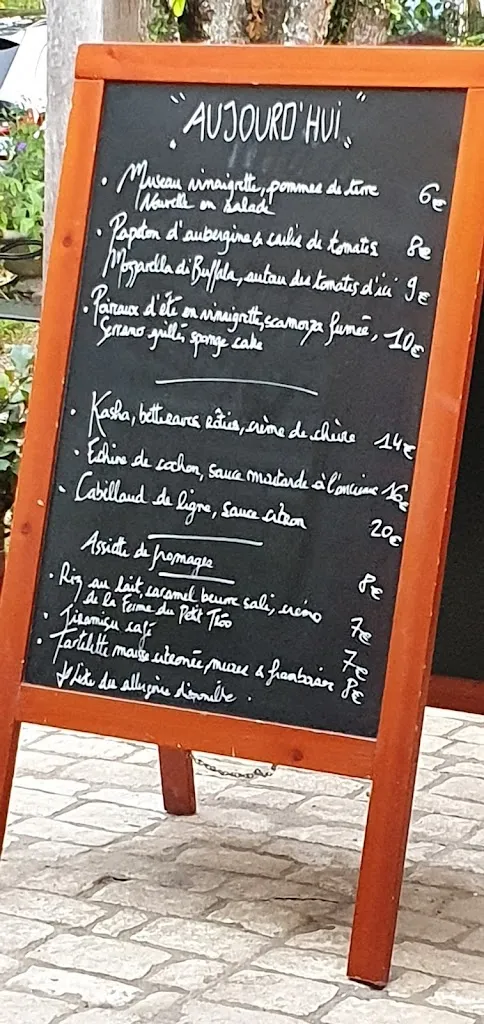 "AUJOURD'HUI"
• Museau vinaigrette, pommes de terre 6€
Nouvelle en salade
• Papeton d'aubergine & coulis de tomates 8€
Mozzarella di Buffala, autour des tomates d'ici 9€
• Poireaux d'été en vinaigrette, scamorza fumée, 10€
Serrano grillé, sponge cake
• Kasha, betteraves rôties, crème de chèvre 14€
• Échine de cochon, sauce moutarde à l'ancienne 16€
• Cabillaud de ligne, sauce citron 20€
Assiette de fromages 8€
• Riz au lait, caramel beurre salé, 7€
de la Ferme du Petit
• Tiramisu café 7€
• Tartelette mousse citronnée, mures & framboises 8€
Liste des allergènes disponible.